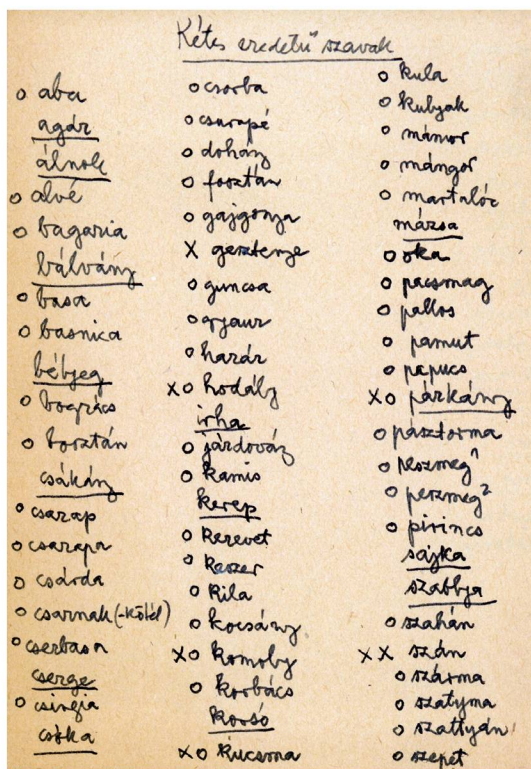 Kétes eredetű szavak
o aba
agár
álnok
o alvé
o bagaria
bálvány
o basa
o basnica
bébjeg
o bogrács
o bosztán
csákány
o csarap
o csarapa
o csárda
o csarnak (-kötél)
o cserbasa
cserge
o csingia
csóka
o csorba
o csurapé
o dohány
o fosztán
o gajgonya
X gesztenye
o guncsa
o gyaur
o harár
X o hodály
irha
o járdovány
o kamis
kerep
o kerevet
o keszer
o kila
o kocsány
X o komoly
o korbács
korsó
X o kucsma
o kula
o kulyak
o mámor
o mángor
o martalóc
mázsa
o oka
o pacsmag
o pallos
o pamut
o papucs
X o párkány
o pásztorma
o peszmeg¹
o peszmeg²
o pirincs
sajka
szablya
o szahán
X X szán
o szárma
o szatyma
o szattyán
o szepet